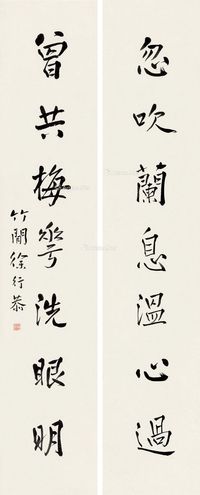 忽吹蘭息溫心過
曾共梅雩洗眼明
竹間徐行恭